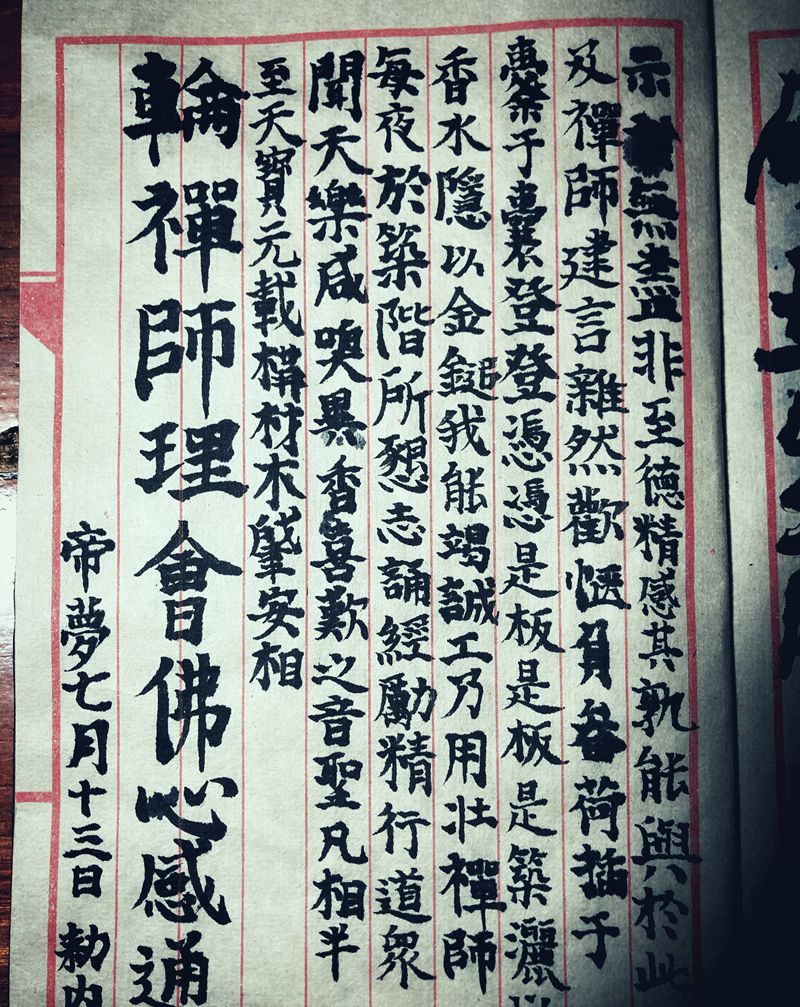 示無盡非至德精感其孰能與於此
及禪師建言雜然歡愜負畚荷插于
橐于囊登登憑憑是板是築灑以
香水隱以金鎚我能竭誠工乃用壯禪師
每夜於築階所懇志誦經勵精行道眾
聞天樂咸嗅異香喜歎之音聖凡相半
至天寶元載構材木肇安相
輪禪師理會佛心感通
帝夢七月十三日勅內